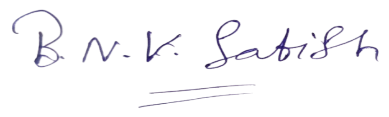 B. N. K. Satish